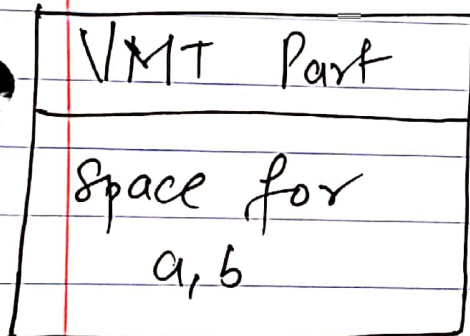 VMT Part
Space for
a, b